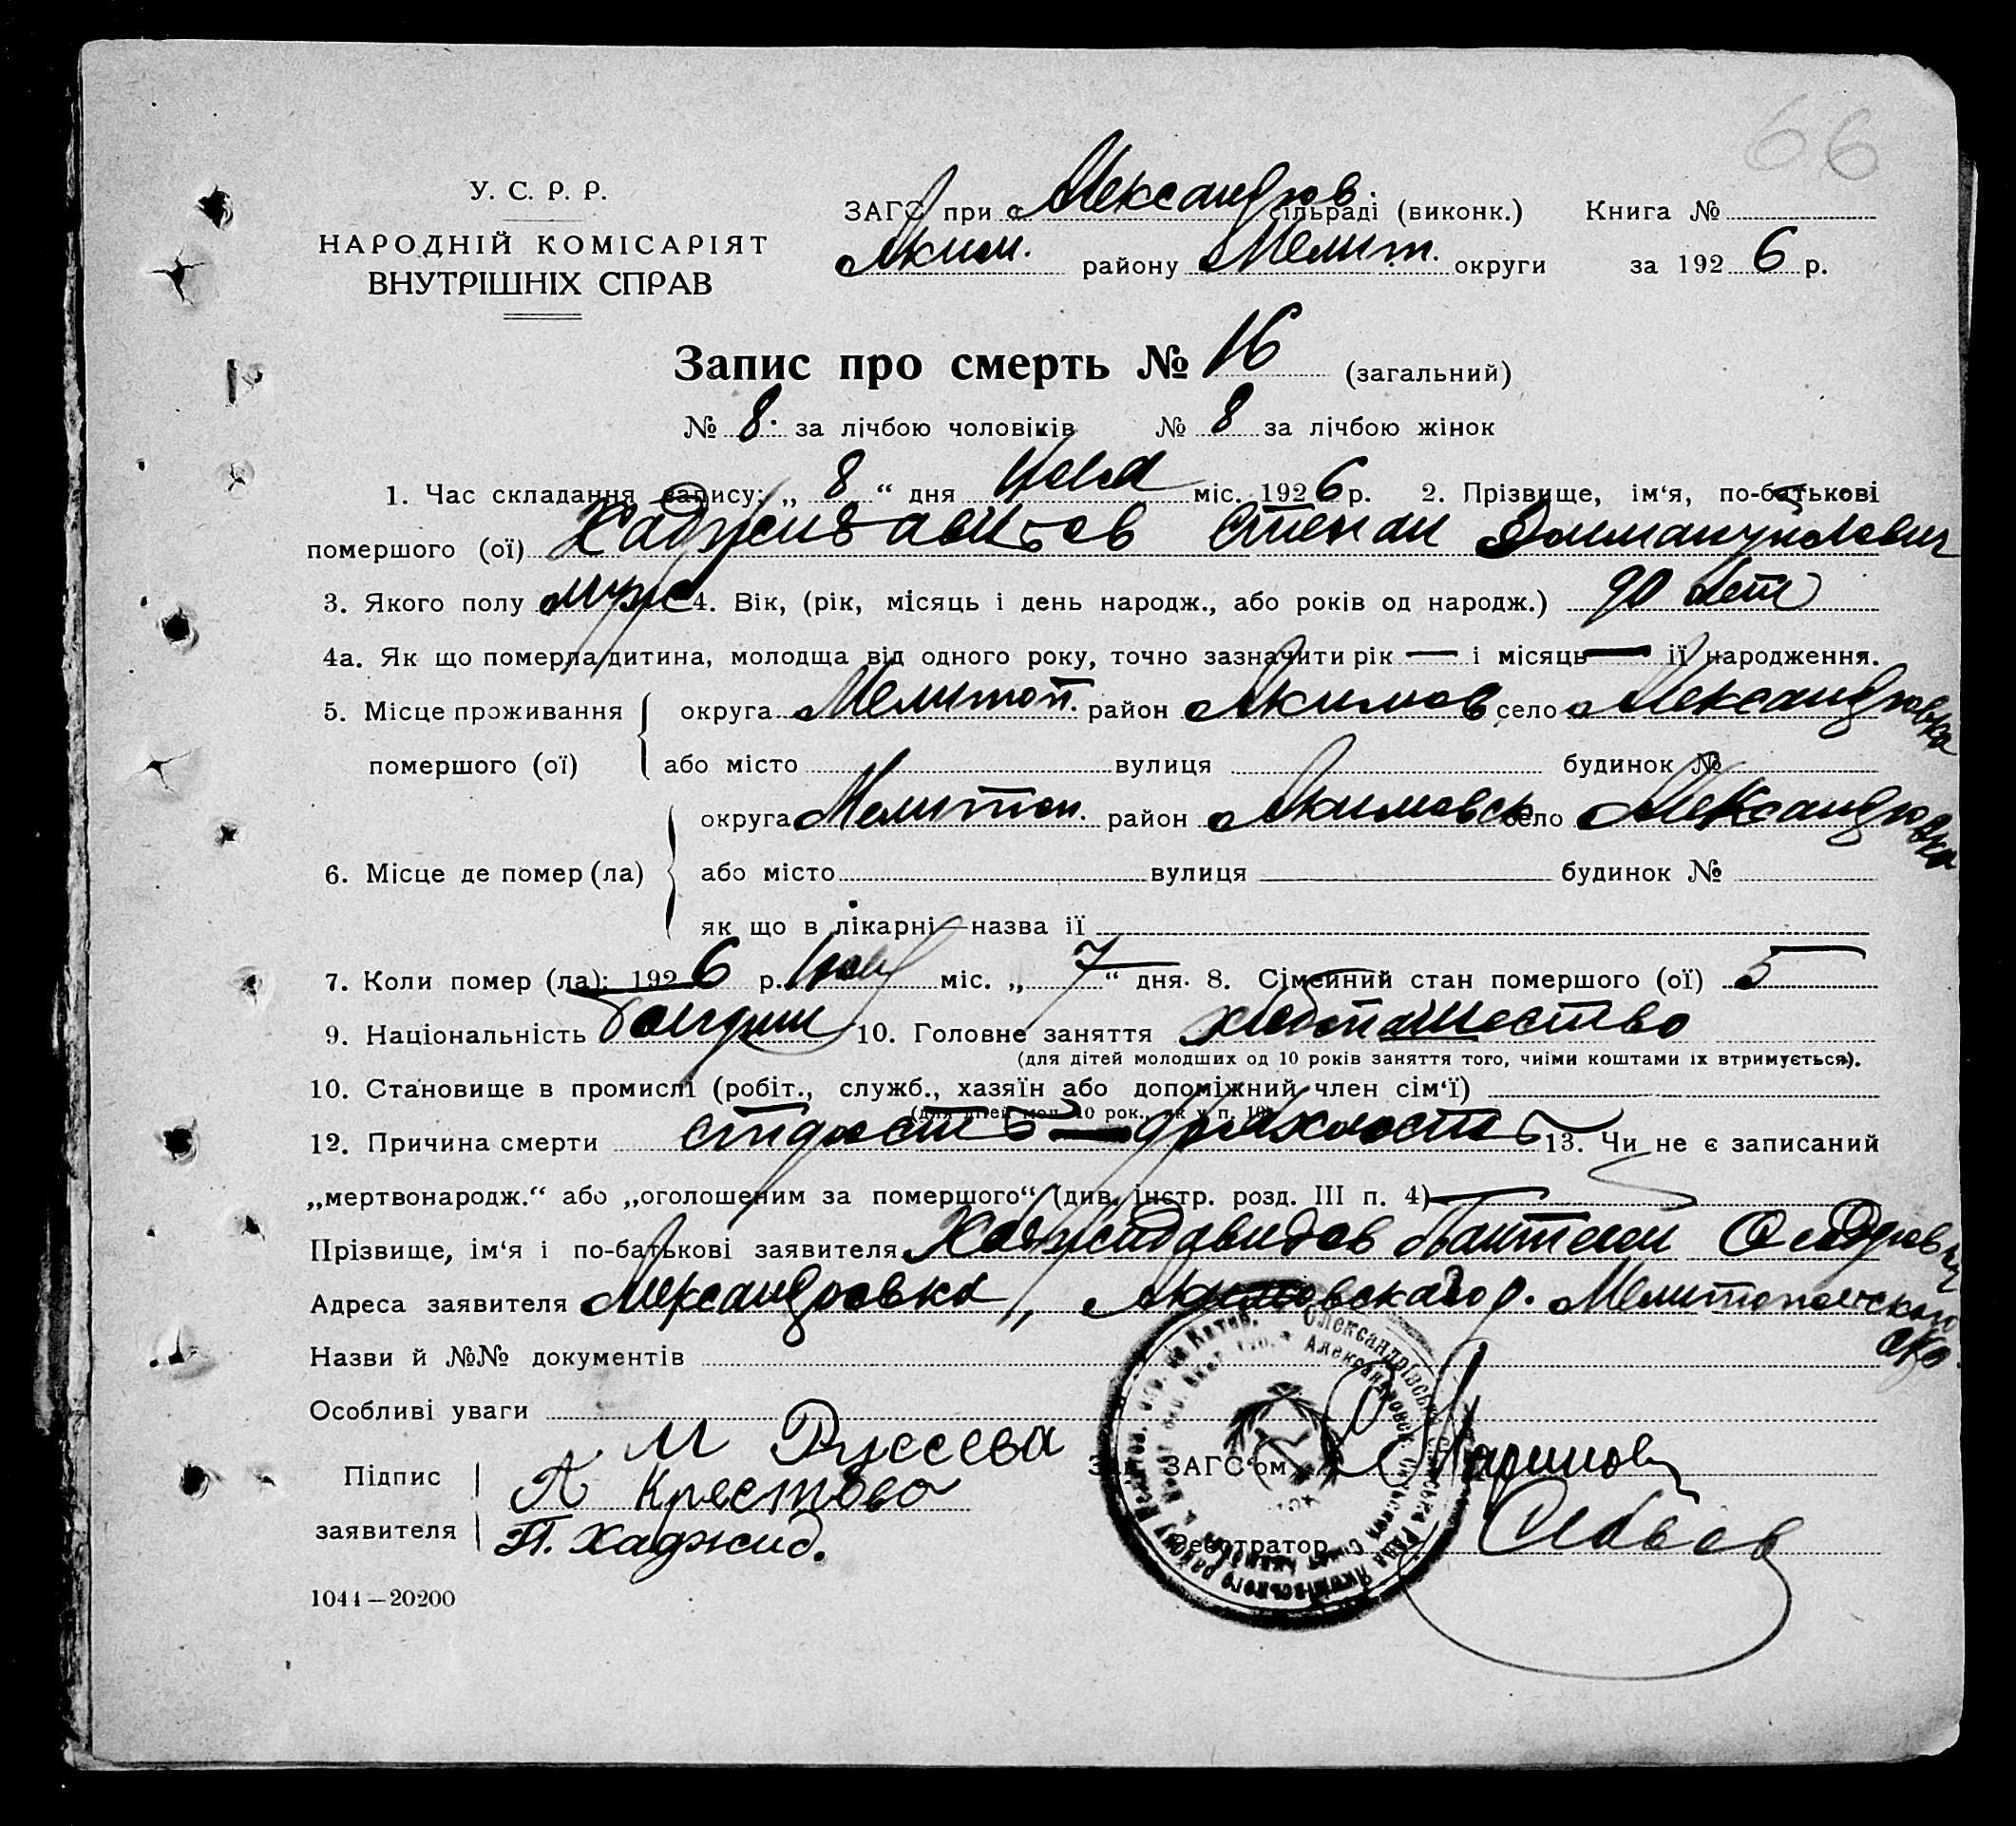 66
У. С. Р. Р.
НАРОДНІЙ КОМІСАРІЯТ
ВНУТРІШНІХ СПРАВ
ЗАГС при Александров. сільраді (виконк.) Книга №
Аким. району Мелит. округи за 1926 р.
Запис про смерть № 16 (загальний)
№ 8. за лічбою чоловіків № 8 за лічбою жінок
1. Час складання запису: „ 8 “ дня міс. 1926 р. 2. Прізвище, ім‘я, по-батькові
помершого (ої) Степан
3. Якого полу муж 4. Вік, (рік, місяць і день народж., або років од народж.) 90 лет
4а. Як що померла дитина, молодща від одного року, точно зазначити рік — і місяць — її народження.
5. Місце проживання округа Мелитоп. район Акимов село Александровка
помершого (ої) або місто вулиця будинок №
округа Мелитоп. район Акимовск село Александровка
6. Місце де помер (ла) або місто вулиця будинок №
як що в лікарні—назва її
7. Коли помер (ла): 1926 р. міс. „ 7 “ дня. 8. Сімейний стан помершого (ої) 5
9. Національність 10. Головне заняття хлебопашество
(для дітей молодших од 10 років заняття того, чиїми коштами їх втримується).
10. Становище в промислі (робіт., служб., хазяїн або допоміжний член сім‘ї)
(для дітей мол. 10 рок., як у п. 10)
12. Причина смерти старость — дряхлость 13. Чи не є записаний
„мертвонародж.“ або „оголошеним за помершого“ (див. інстр. розд. III п. 4) —
Прізвище, ім‘я і по-батькові заявителя Хаджидавидов Пантелей
Адреса заявителя Александровка, Акимовского р. Мелитопольского
окр.
Назви й №№ документів
Особливі уваги
М Русева
Підпис А Крестова
заявителя П. Хаджид.
Зав. ЗАГС‘ом Маринов
Реєстратор
1044—20200